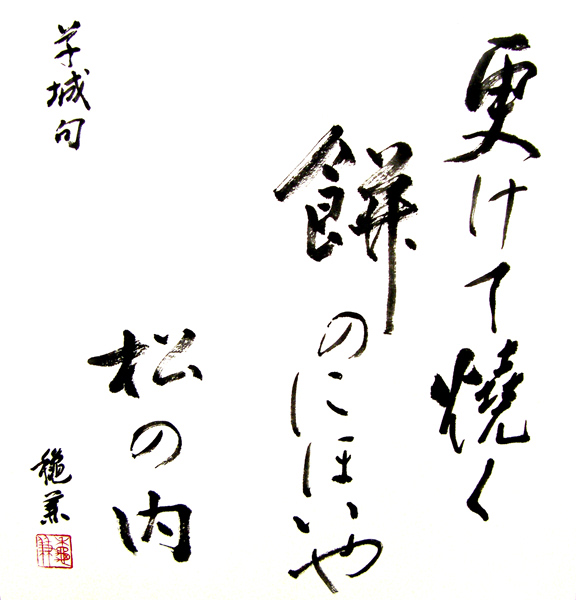 更けて焼く
餅のにほいや
松の内
草城句